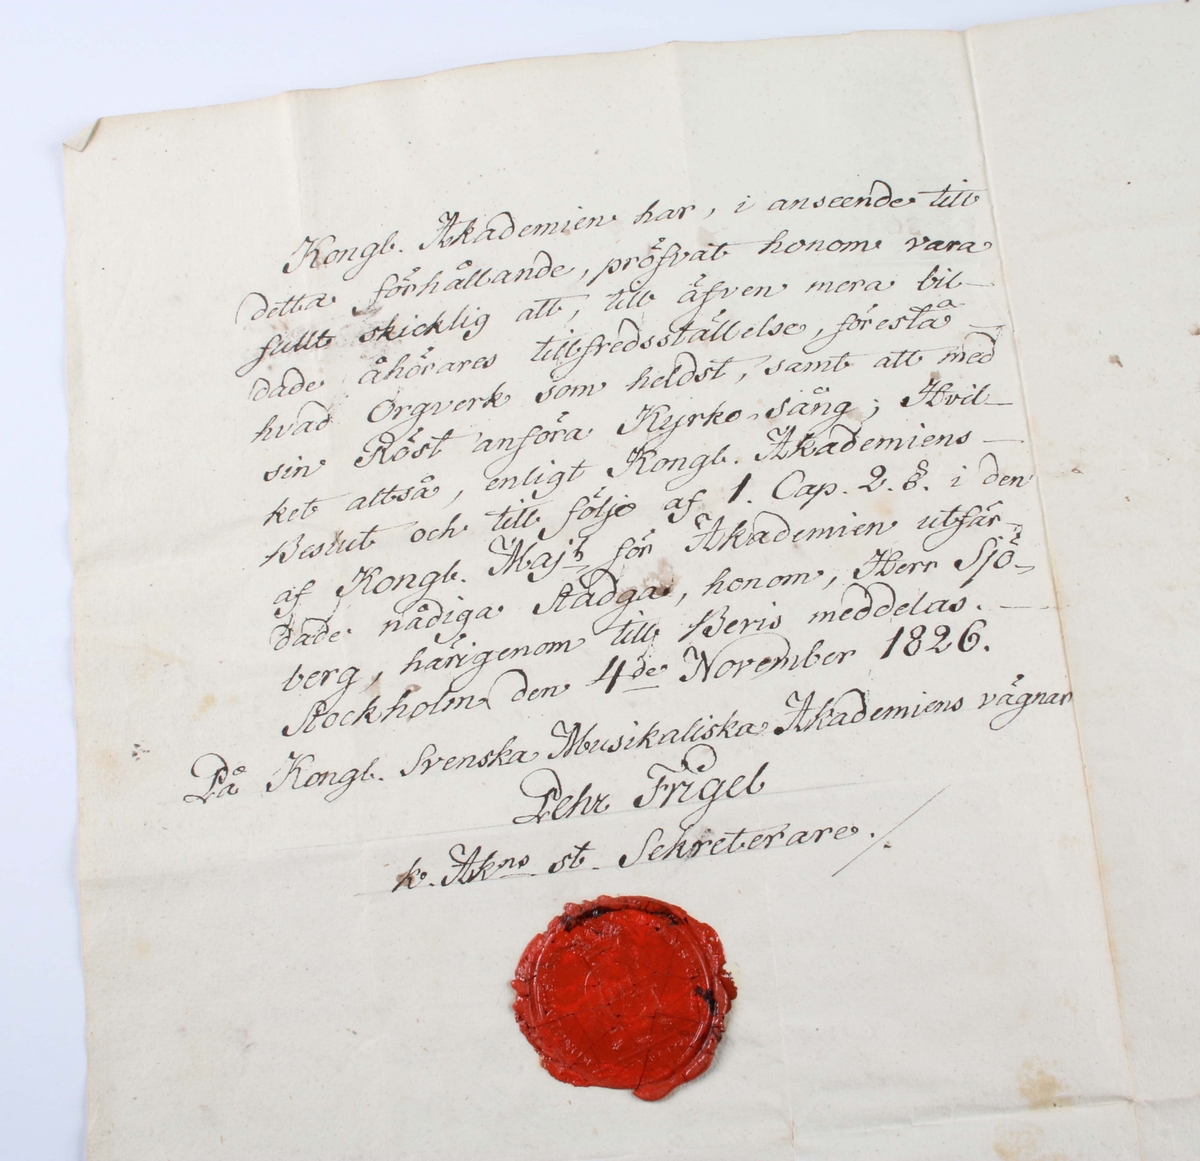 Kongl. Akademien har, i anseende till
detta förhållande, pröfvat honom vara
fullt skicklig att, till äfven mera bil-
dade åhörares tillfredsställelse förestå
hvad Orgverk som heldst, samt att med
sin Röst anföra Kyrko-sång; Hvil-
ket altså, enligt Kongl. Akademiens
Beslut och till följe af 1. Cap. 2. §. i den
af Kongl. Majt för Akademien utfär-
dade nådiga Stadga, honom, Herr Sjö-
berg, härigenom till Bevis meddelas.
Stockholm den 4de November 1826.
På Kongl. Svenska Musikaliska Akademiens vägnar
Pehr Frigel
k. Akns st. Sekreterare.